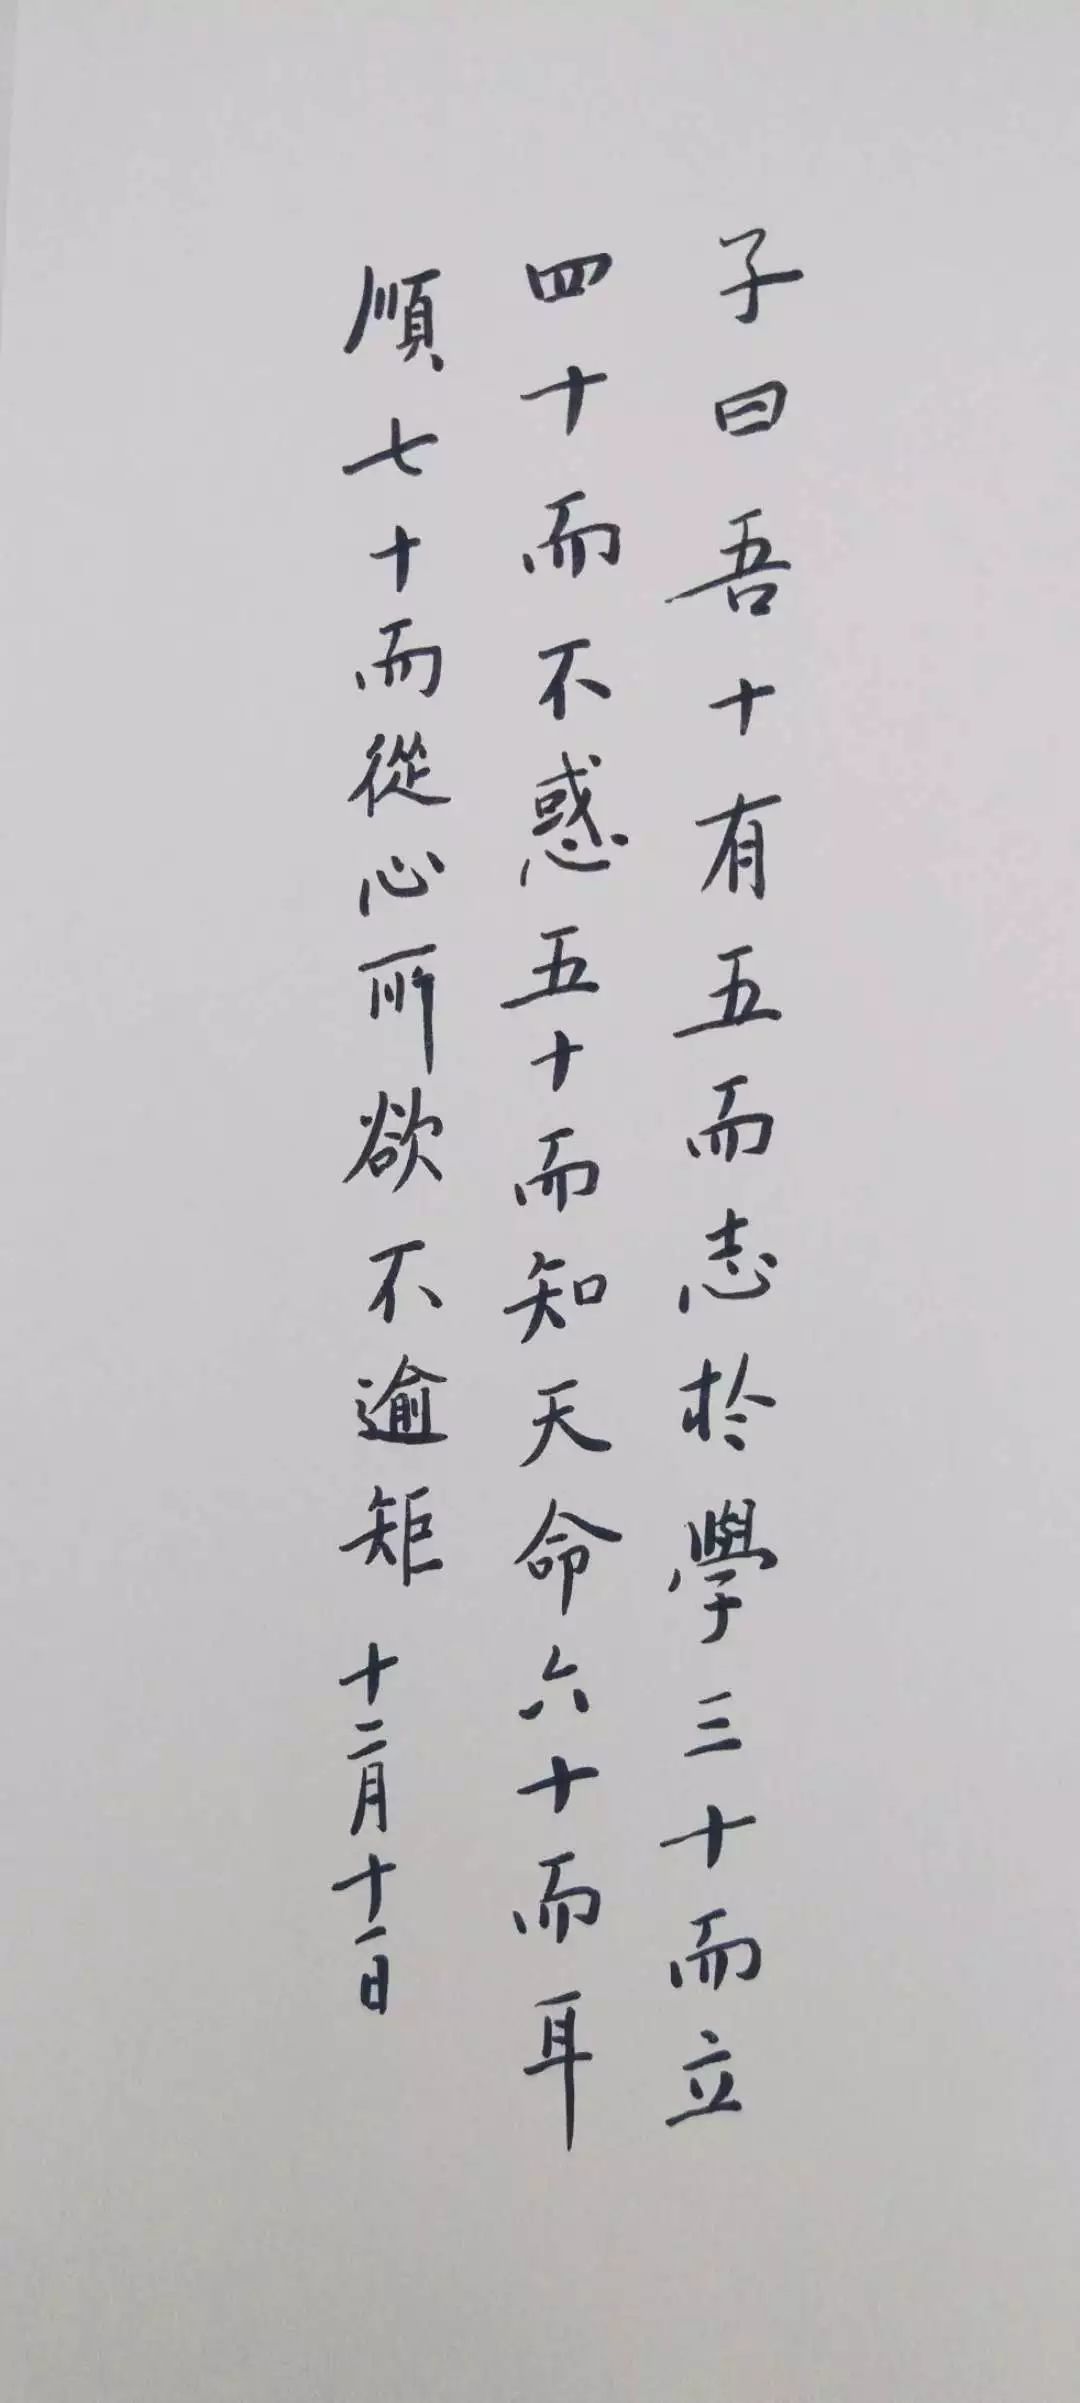 子曰吾十有五而志於學三十而立
四十而不惑五十而知天命六十而耳
順七十而從心所欲不逾矩 十二月十一日